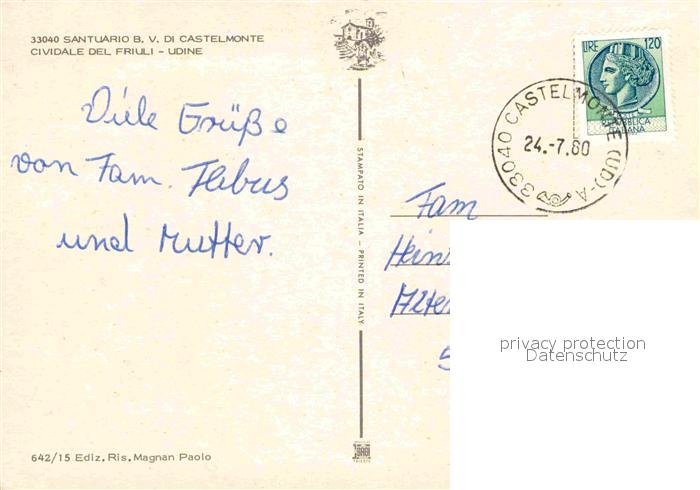 33040 SANTUARIO B. V. DI CASTELMONTE
CIVIDALE DEL FRIULI - UDINE
Viele Grüße
von Fam.
und Mutter.
642/15 Ediz. Ris. Magnan Paolo
STAMPATO IN ITALIA - PRINTED IN ITALY
LIRE 120
REPUBBLICA
ITALIANA
33040 CASTELMONTE (UD)-A
24.-7.80
Fam
Hein
Alte
5
privacy protection
Datenschutz